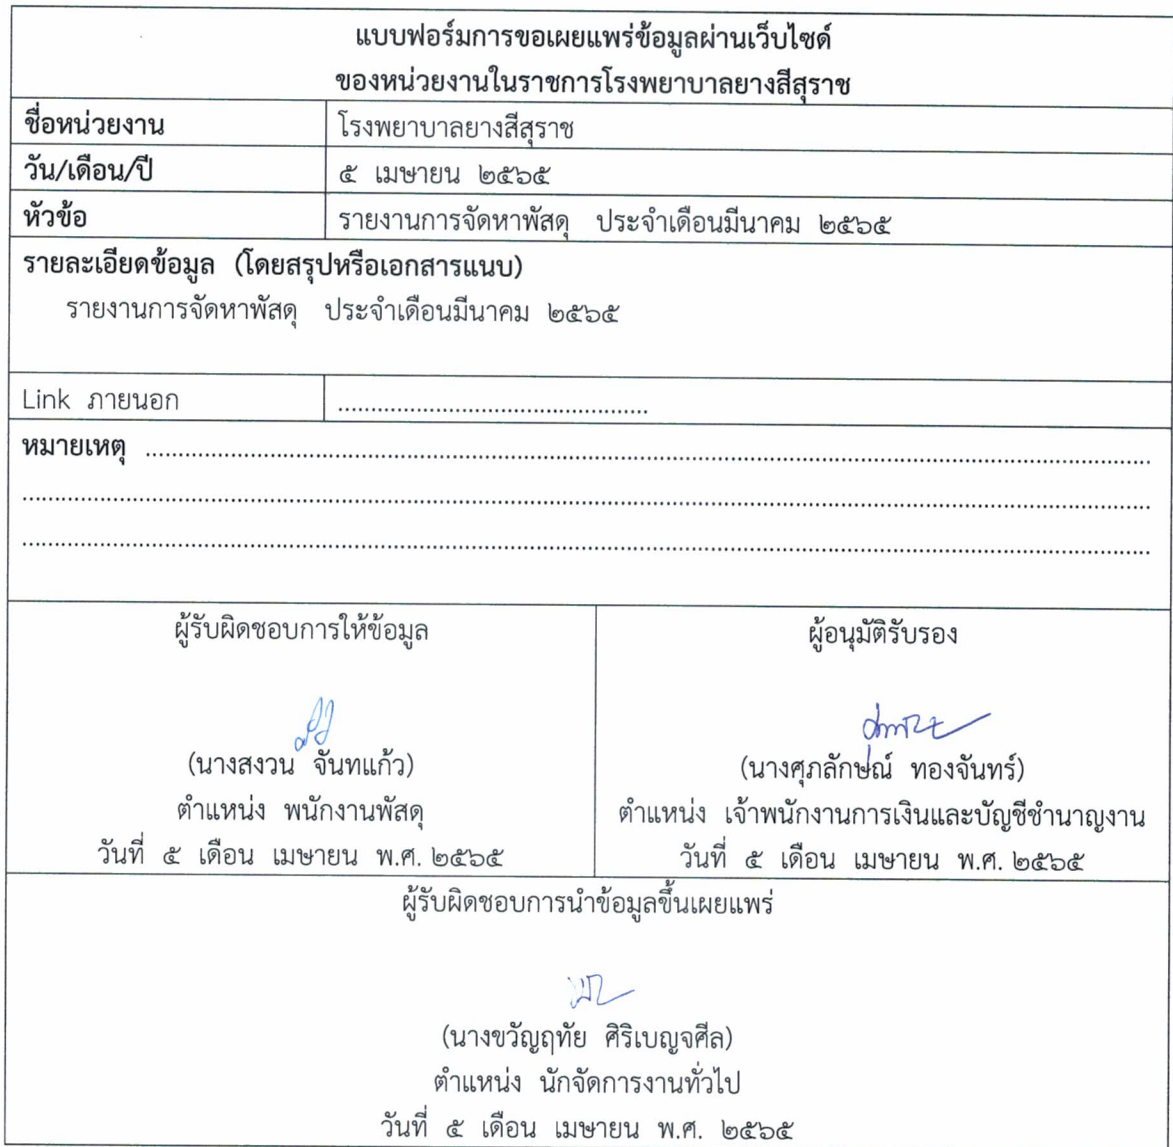 แบบฟอร์มการขอเผยแพร่ข้อมูลผ่านเว็บไซต์
ของหน่วยงานในราชการโรงพยาบาลยางสีสุราช
ชื่อหน่วยงาน โรงพยาบาลยางสีสุราช
วัน/เดือน/ปี ๕ เมษายน ๒๕๖๕
หัวข้อ รายงานการจัดหาพัสดุ ประจำเดือนมีนาคม ๒๕๖๕
รายละเอียดข้อมูล (โดยสรุปหรือเอกสารแนบ)
รายงานการจัดหาพัสดุ ประจำเดือนมีนาคม ๒๕๖๕
Link ภายนอก ................................................
หมายเหตุ ................................................................................
................................................................................
................................................................................
ผู้รับผิดชอบการให้ข้อมูล
(นางสงวน จันทแก้ว)
ตำแหน่ง พนักงานพัสดุ
วันที่ ๕ เดือน เมษายน พ.ศ. ๒๕๖๕
ผู้อนุมัติรับรอง
(นางศุภลักษณ์ ทองจันทร์)
ตำแหน่ง เจ้าพนักงานการเงินและบัญชีชำนาญงาน
วันที่ ๕ เดือน เมษายน พ.ศ. ๒๕๖๕
ผู้รับผิดชอบการนำข้อมูลขึ้นเผยแพร่
(นางขวัญฤทัย ศิริเบญจศีล)
ตำแหน่ง นักจัดการงานทั่วไป
วันที่ ๕ เดือน เมษายน พ.ศ. ๒๕๖๕